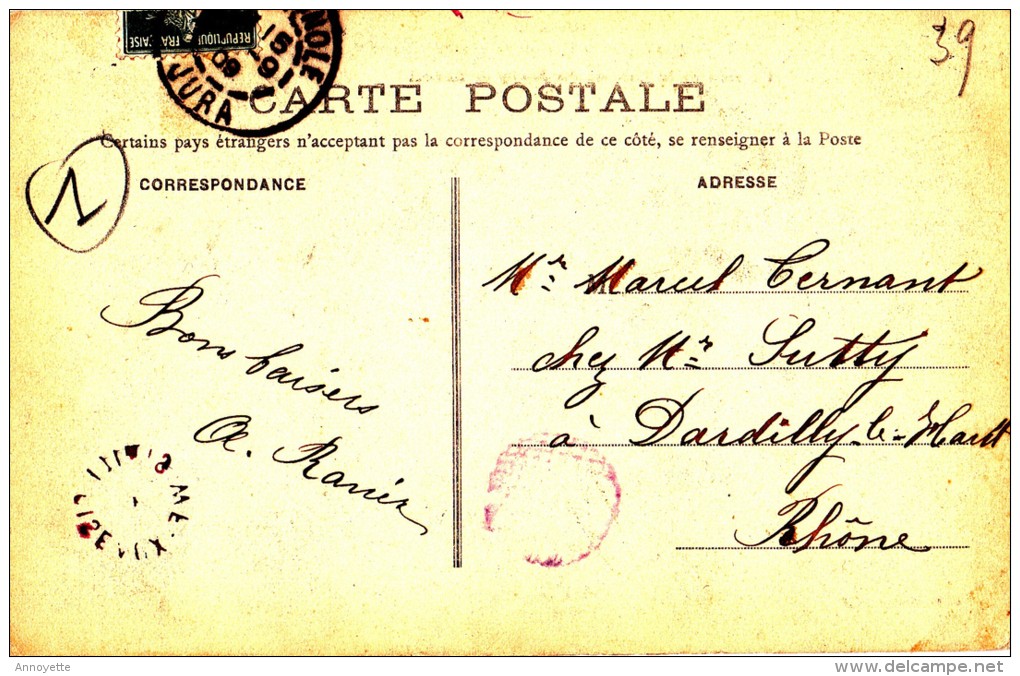 REPUBLIQUE FRANÇAISE
NOLE
15
-9
09
JURA
39
CARTE POSTALE
Certains pays étrangers n'acceptant pas la correspondance de ce côté, se renseigner à la Poste
1
CORRESPONDANCE
ADRESSE
Bons baisers
A. Ranié
Mr Marcel Cernant
chez Mr Sutty
à Dardilly-le-Haut
Rhône
Annoyette
www.delcampe.net